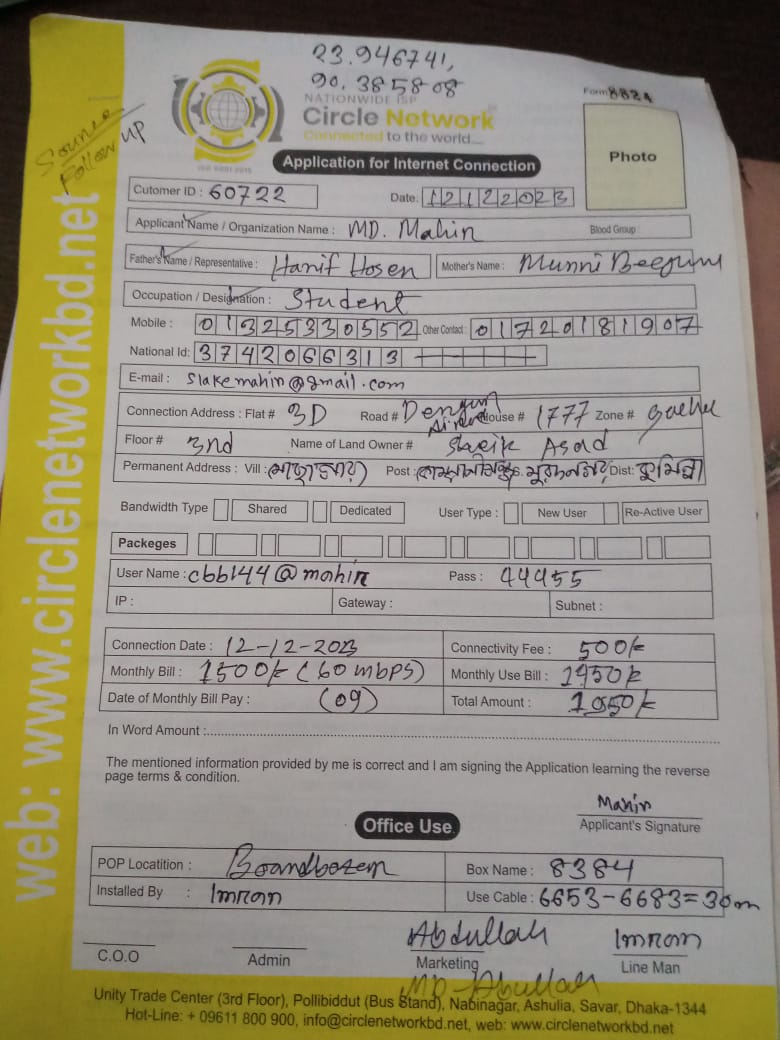 23.946741,
90.385808
NATIONWIDE ISP
Circle Network
Connected to the world....
ISO 9001:2015
Form 8824
Follow UP
Photo
Application for Internet Connection
Cutomer ID : 60722
Date: 12122023
Applicant Name / Organization Name : MD. Mahin Blood Group :
Father's Name / Representative : Hanif Hosen Mother's Name : Munni Beegum
Occupation / Designation : Student
Mobile : 01325330552 Other Contact : 01720181907
National Id: 3742066313
E-mail : slakemahin@gmail.com
Connection Address : Flat # 3D Road # House # 1777 Zone #
Floor # 3nd Name of Land Owner # Sheik Asad
Permanent Address : Vill : Post : Dist: কুমিল্লা
Bandwidth Type Shared Dedicated User Type : New User Re-Active User
Packeges
User Name : cbb144@mahin Pass : 44455
IP : Gateway : Subnet :
Connection Date : 12-12-2023 Connectivity Fee : 500/-
Monthly Bill : 1500/- (60 mbps) Monthly Use Bill :
Date of Monthly Bill Pay : (09) Total Amount :
In Word Amount :
The mentioned information provided by me is correct and I am signing the Application learning the reverse
page terms & condition.
Mahin
Applicant's Signature
Office Use
POP Locatition : Boardbazem Box Name : 8384
Installed By : Imran Use Cable : 6653-6683=30m
Abdullah Imran
C.O.O Admin Marketing Line Man
MD. Abullah
Unity Trade Center (3rd Floor), Pollibiddut (Bus Stand), Nabinagar, Ashulia, Savar, Dhaka-1344
Hot-Line: + 09611 800 900, info@circlenetworkbd.net, web: www.circlenetworkbd.net
web: www.circlenetworkbd.net